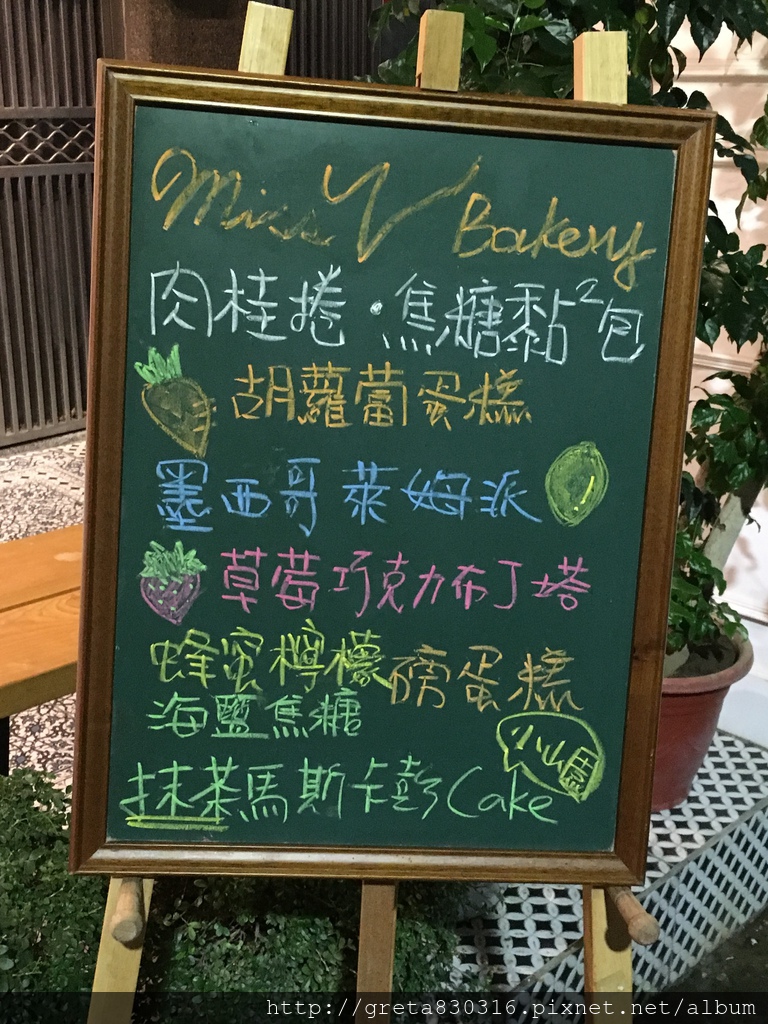 Miss V Bakery
肉桂捲・焦糖黏²包
胡蘿蔔蛋糕
墨西哥萊姆派
草莓巧克力布丁塔
蜂蜜檸檬磅蛋糕
海鹽焦糖
小山園
抹茶馬斯卡彭Cake
http://greta830316.pixnet.net/album